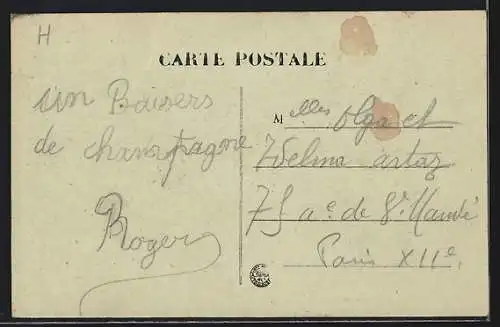 H
CARTE POSTALE
un Baisers
de champagne
Roger
Melles Olga et
Welma artaz
75 ae de St Mandé
Paris XIIe.